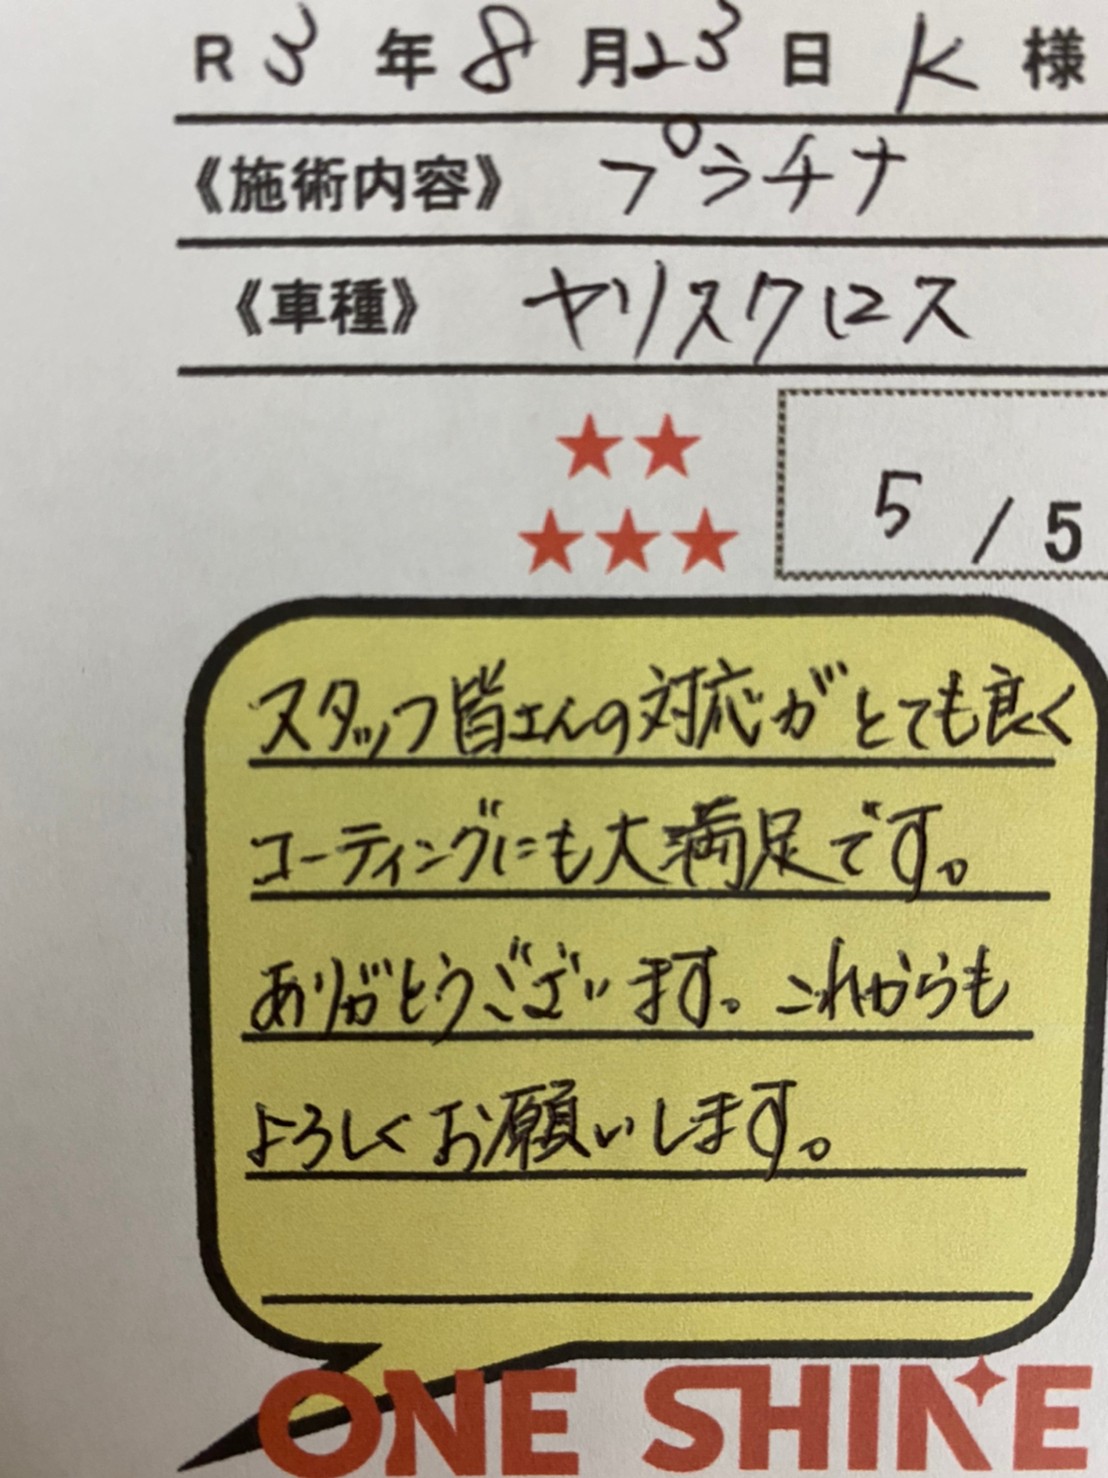 R 3 年 8 月 23 日 K 様
《施術内容》 プラチナ
《車種》 ヤリスクロス
★★
★★★
5 / 5
スタッフ皆さんの対応がとても良く
コーティングにも大満足です。
ありがとうございます。これからも
よろしくお願いします。
ONE SHINE